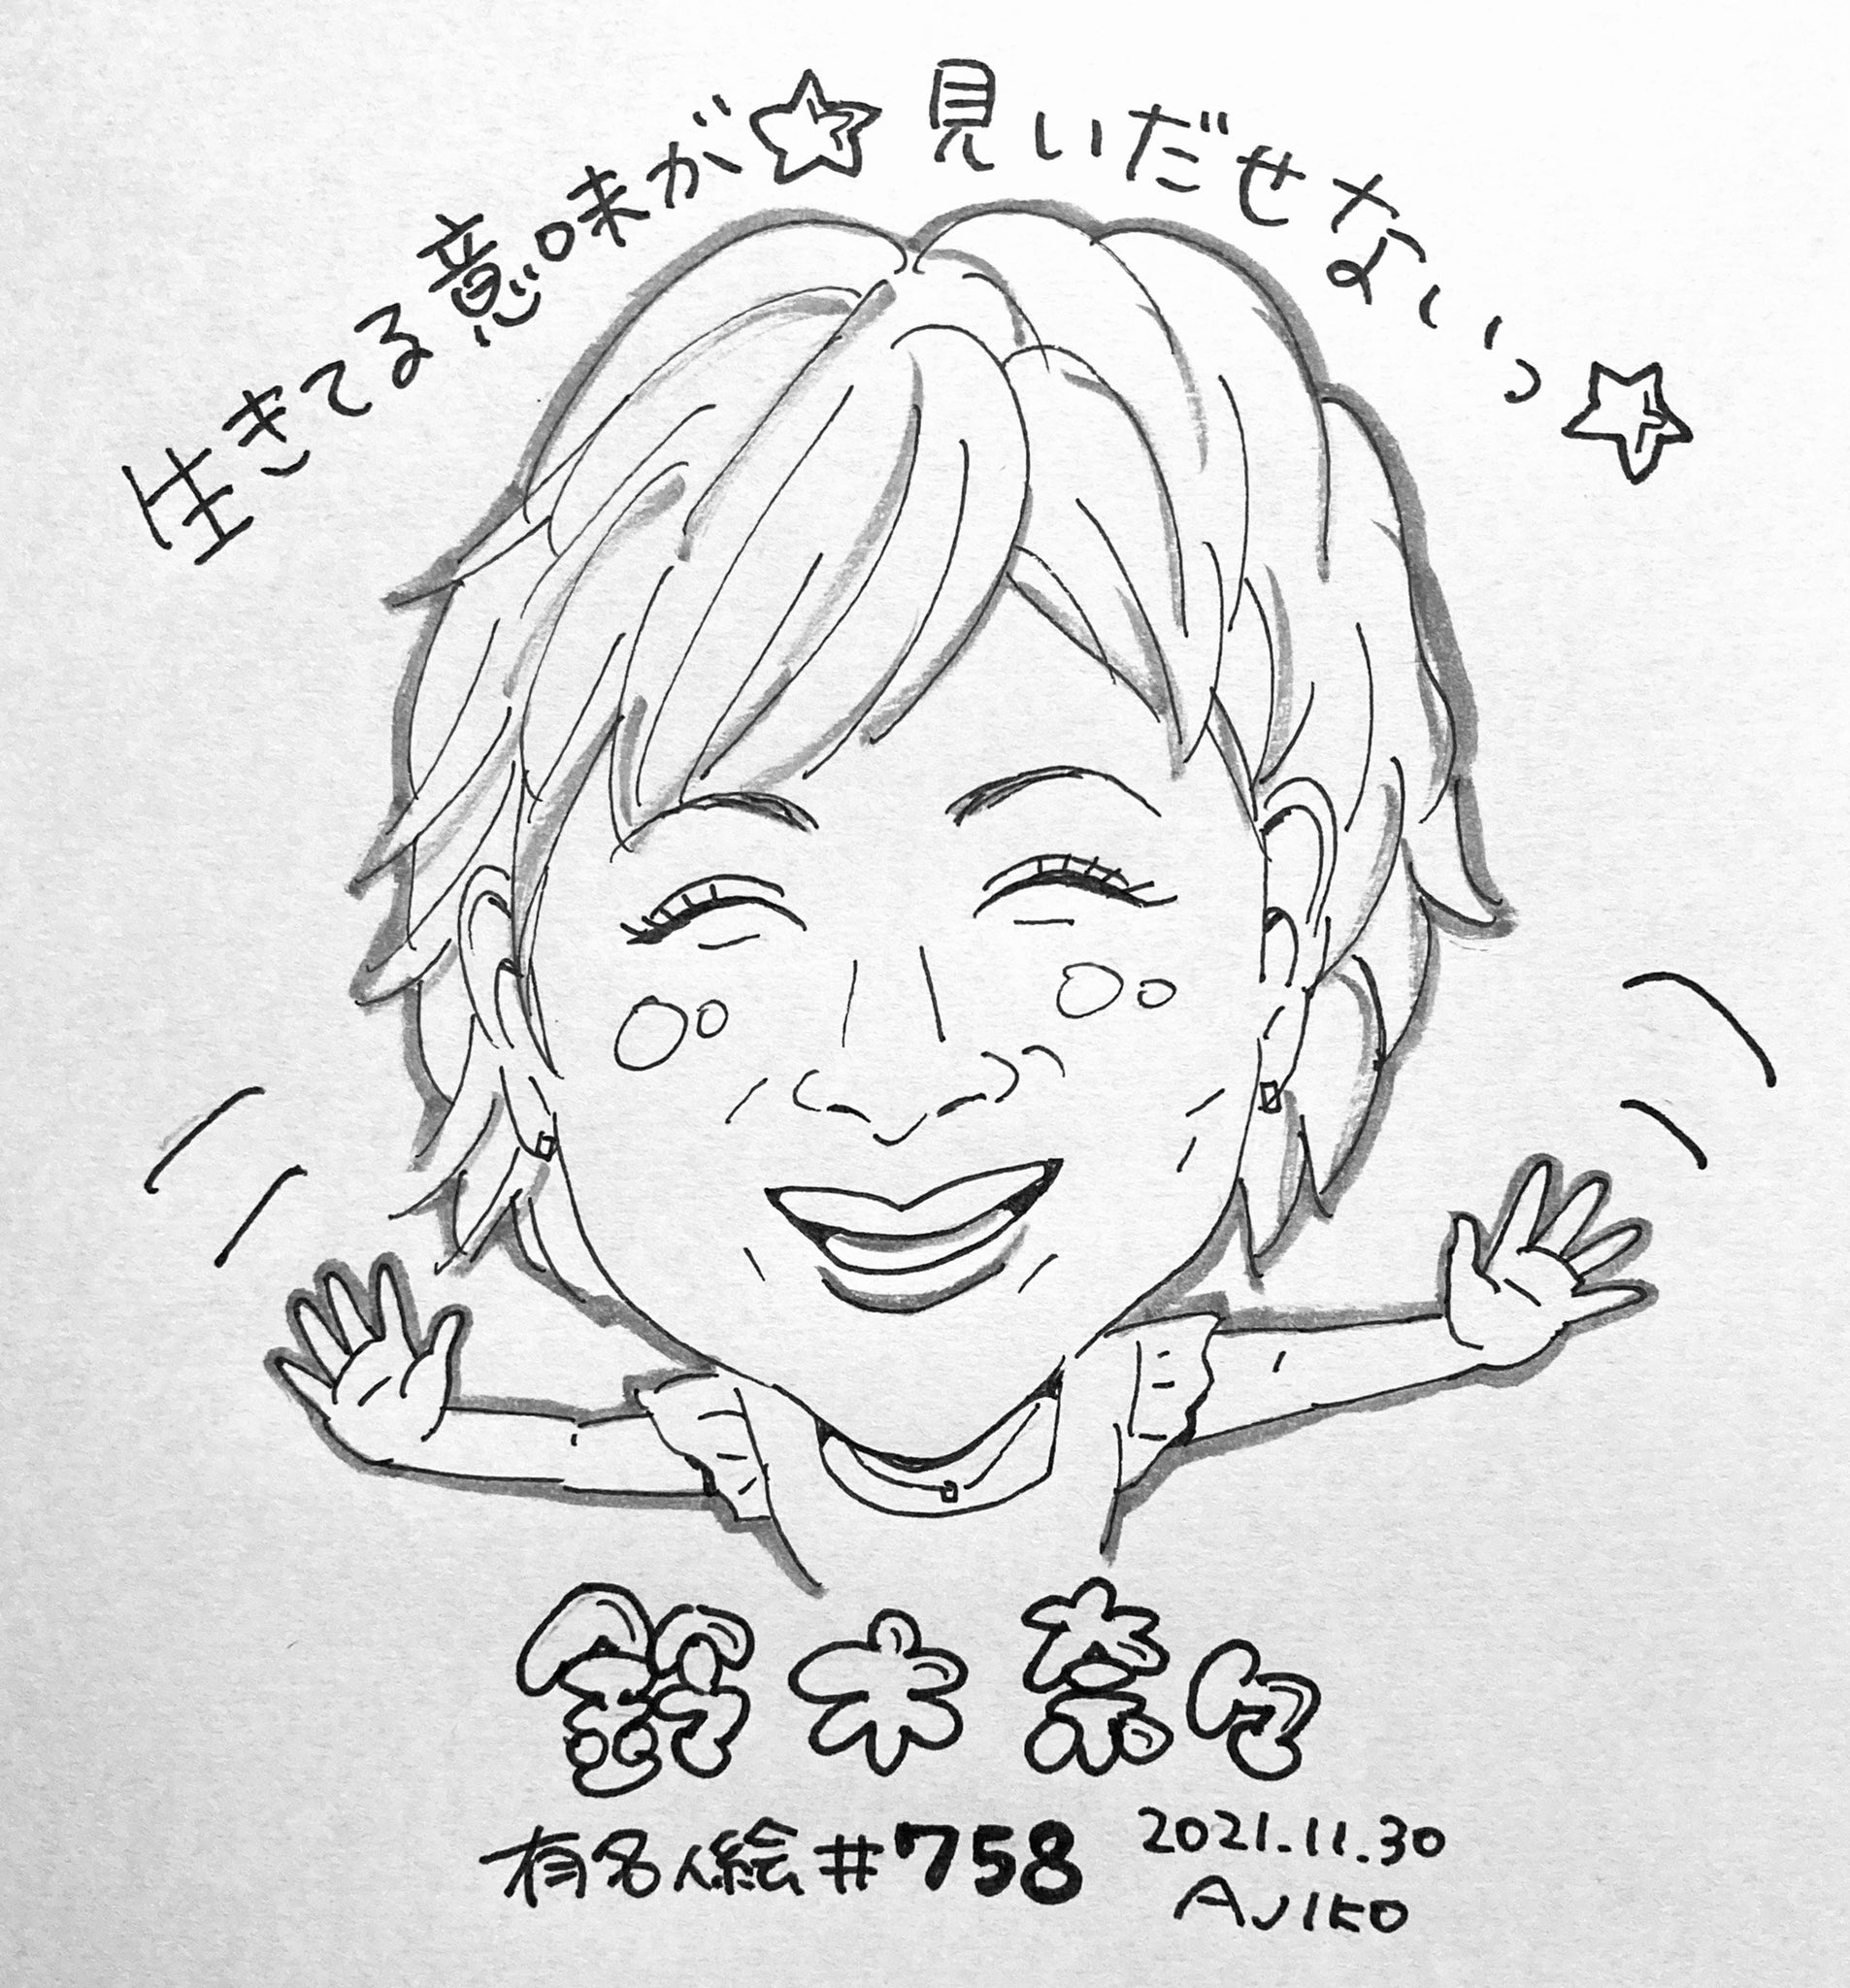 生きてる意味が☆見いだせないっ☆
鈴木奈々
有名人絵#758
2021.11.30
AJIKO